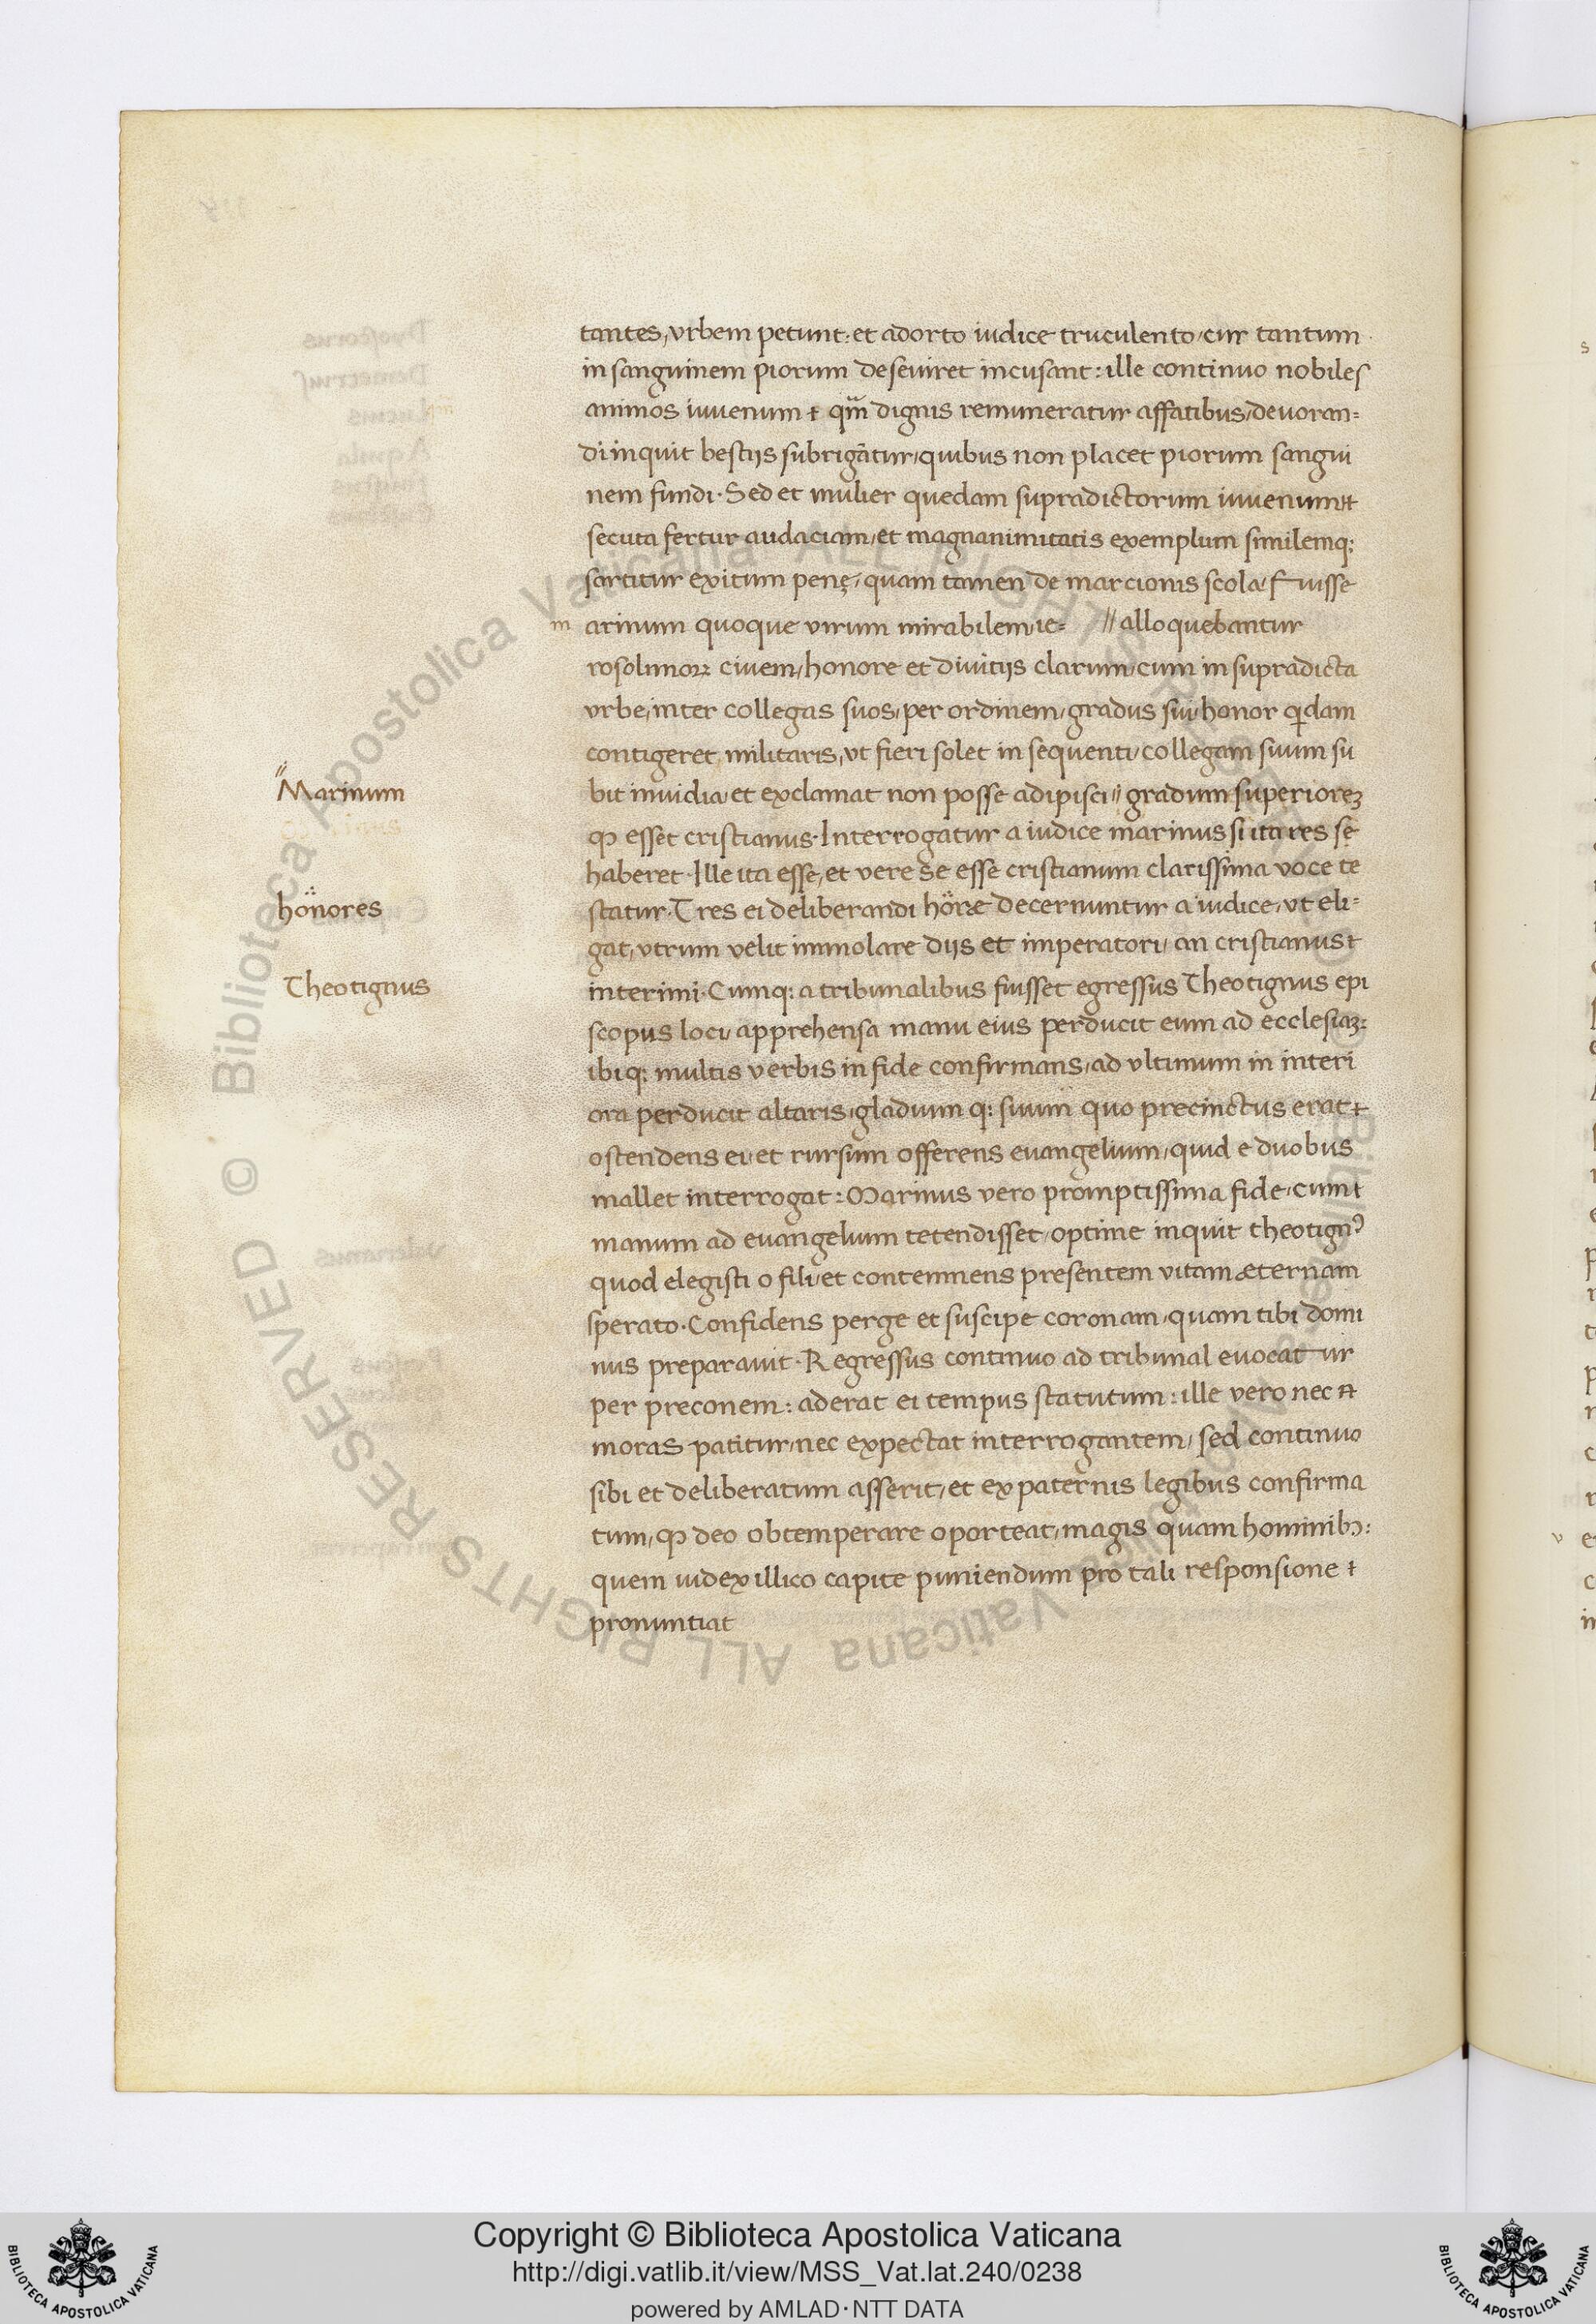 tantes, vrbem petunt: et adorto iudice truculento, cur tantum
in sanguinem piorum deseuiret incusant: ille continuo nobiles
animos iuuenum & qm̃ dignis remuneratur affatibus, deuoran=
di inquit bestijs subrigãtur, quibus non placet piorum sangui
nem fundi. Sed et mulier quedam supradictorum iuuenum
secuta fertur audaciam, et magnanimitatis exemplum similemq;
sortitur exitum penę, quam tamen de marcionis scola fuisse
m arinum quoque virum mirabilem, ie= // alloquebantur
rosolimoꝝ ciuem, honore et diuitijs clarum, cum in supradicta
vrbe, inter collegas suos, per ordinem, gradus sui, honor qdam
contigeret militaris, vt fieri solet in sequenti, collegam suum su
Marinum
bit inuidia, et exclamat non posse adipisci // gradum superioreʒ
ꝙ esset cristianus. Interrogatur a iudice marinus si ita res se
haberet. Ille ita esse, et vere se esse cristianum clarissima voce te
honores
statur. Tres ei deliberandi horæ decernuntur a iudice, vt eli=
gat, vtrum velit immolare diis et imperatori, an cristianus
Theotignus
interimi. Cumq; a tribunalibus fuisset egressus Theotignus epi
scopus loci, apprehensa manu eius perducit eum ad ecclesiaʒ:
ibiq; multis verbis in fide confirmans, ad vltimum in interi
ora perducit altaris, gladium q; suum quo precinctus erat
ostendens ei, et rursum offerens euangelium, quid e duobus
mallet interrogat: Marinus vero promptissima fide, cum
manum ad euangelium tetendisset, optime inquit theotignꝰ
quod elegisti o fili, et contemnens presentem vitam æternam
sperato. Confidens perge et suscipe coronam, quam tibi domi
nus preparauit. Regressus continuo ad tribunal euocatur
per preconem: aderat ei tempus statutum: ille vero nec
moras patitur, nec expectat interrogantem, sed continuo
sibi et deliberatum asserit, et ex paternis legibus confirma
tum, ꝙ deo obtemperare oporteat, magis quam hominibꝫ:
quem iudex illico capite puniendum pro tali responsione
pronuntiat
Copyright © Biblioteca Apostolica Vaticana
http://digi.vatlib.it/view/MSS_Vat.lat.240/0238
powered by AMLAD·NTT DATA